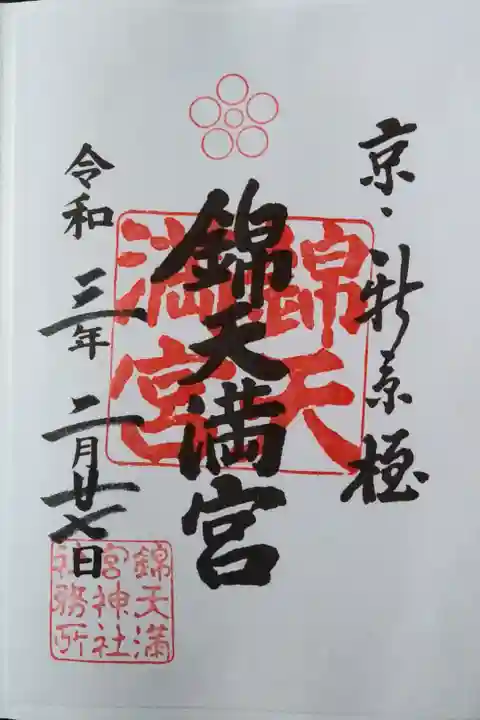 京・新京極
錦天満宮
錦天
満宮
令和三年二月廿七日
錦天満
宮神社
社務所